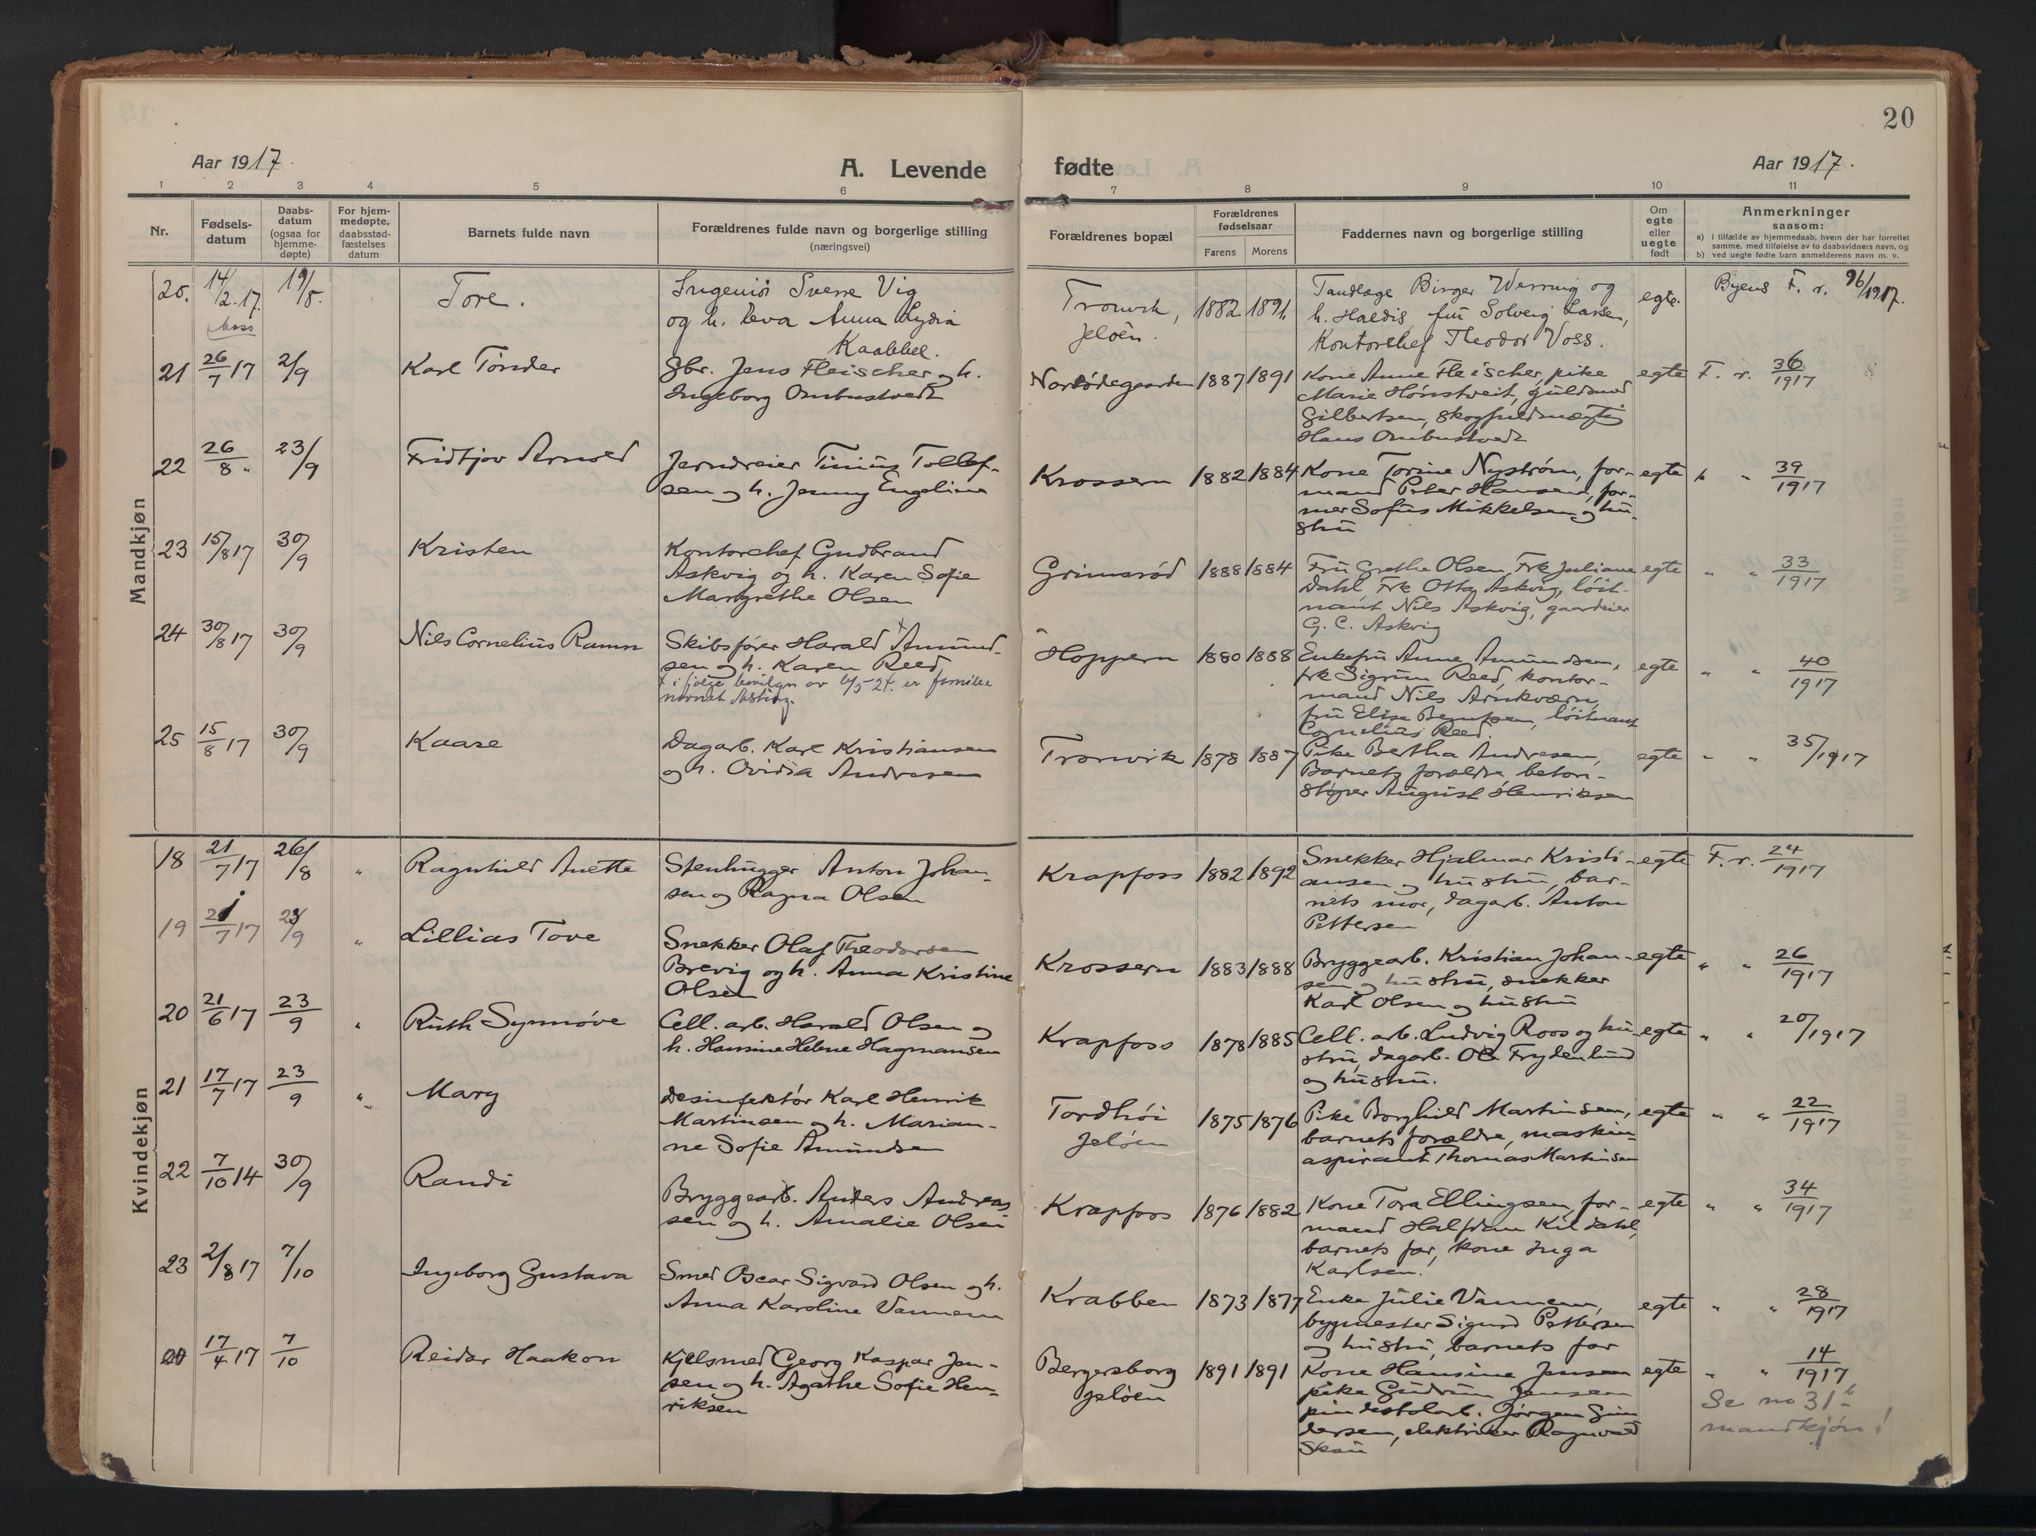 20
Aar 1917.
A. Levende
fødte
Aar 1917.
1 2 3 4 5 6 7 8 9 10 11
Nr.
Fødselsdatum
Daabsdatum (ogsaa for hjemmedøpte)
For hjemmedøpte, daabsstadfæstelses datum
Barnets fulde navn
Forældrenes fulde navn og borgerlige stilling
(næringsvei)
Forældrenes bopæl
Forældrenes fødselsaar
Farens Morens
Faddernes navn og borgerlige stilling
Om egte eller uegte født
Anmerkninger
saasom:
a) i tilfælde av hjemmedaab, hvem der har forrettet
samme, med tilføielse av to daabsvidners navn, og
b) ved uegte fødte barn anmelderens navn m. v.
Mandkjøn
20. 14/2.17. 19/8. Tore. Ingeniør Sverre Vig
Moss
og h. Eva Anna Lydia
Kaabbel.
Tronvik, Jeløen. 1882 1891. Tandlæge Birger Werring og
h. Haldis, fru Solveig Larsen,
Kontorchef Theodor Voss.
egte. Byens F. r. 96/1917.
21 26/7 17 2/9 Karl Tønder Gbr. Jens Fleischer og h.
Ingeborg Ombustvedt
Norrødegaarden 1887 1891 Kone Anne Fleischer, pike
Marie Hønstveit, guldsmed
Gilbertsen, skogfuldmægtig
Hans Ombustvedt
egte F. r. 36/1917
22 26/8 " 23/9 Fridtjov Arnold Jerndreier Tinius Tollef-
sen og h. Jenny Engeline
Krossern 1882 1884 Kone Torine Nystrøm, for-
mand Peter Hansen, for-
mer Sofus Mikkelsen og hu-
stru
egte " " 39/1917
23 15/8 17 30/9 Kristen Kontorchef Gudbrand
Askvig og h. Karen Sofie
Margrethe Olsen
Grimsrød 1888 1884 Fru Grethe Olsen, Frk Juliane
Dahl Frk Otta Askvig, løit-
nant Nils Askvig, gaardeier
G. C. Askvig
egte " " 33/1917
24 30/8 17 30/9 Nils Cornelius Ramm Skibsfører Harald x Amund-
sen og h. Karen Reed
x i følge bevilgn av 6/5-24. er familie
navnet
Hoppern 1880 1888 Enkefru Anne Amundsen,
frk Sigrun Reed, kontor-
mand Nils Arnkværn,
fru Elise Berntsen, løitnant
Cornelius Reed.
egte " " 40/1917
25 15/8 17 30/9 Kaare Dagarb. Karl Kristiansen
og h. Ovidia Andresen
Tronvik 1878 1887 Pike Bertha Andresen,
Barnets forældre, beton-
støper August Henriksen
egte " " 35/1917
Kvindekjøn
18 21/7 17 26/8 " Ragnhild Anette Stenhugger Anton Johan-
sen og Ragna Olsen
Krapfoss 1882 1892 Snekker Hjalmar Kristi-
ansen og hustru, bar-
nets mor, dagarb. Anton
Pettersen
egte F. r. 24/1917
19 21/7 17 23/9 " Lillias Tove Snekker Olaf Theodorsen
Brevig og h. Anna Kristine
Olsen
Krossern 1883 1888 Bryggearb. Kristian Johan-
sen og hustru, snekker
Karl Olsen og hustru
egte " " 26/1917
20 21/6 17 23/9 " Ruth Synnøve Cell. arb. Harald Olsen og
h. Hansine Helene Hagmansen
Krapfoss 1878 1885 Cell. arb. Ludvig Roos og hu
stru, dagarb. Ole Frydenlund
og hustru.
egte " " 20/1917
21 17/7 17 23/9 " Mary Desinfektør Karl Henrik
Martinsen og h. Marian-
ne Sofie Amundsen
Tordhøi
Jeløen
1875 1876 Pike Borghild Martinsen,
barnets forældre, maskin-
aspirant Thomas Martinsen
egte " " 22/1917
22 7/10 14 30/9 Randi Bryggearb. Anders Andreas
sen og h. Amalie Olsen
Krapfoss 1876 1882 Kone Tora Ellingsen, for-
mand Halfdan Kildahl,
barnets far, kone Inga
Karlsen.
egte " " 34/1917
23 2/8 17 7/10 Ingeborg Gustava Smed Oscar Sigvard Olsen og h.
Anna Karoline Vannem
Krabben 1873 1877 Enke Julie Vannem,
bygmester Sigurd Pettersen
og hustru, barnets far
egte " " 28/1917
17/4 17 7/10 Reidar Haakon Kjelsmed Georg Kaspar Jen-
sen og h. Agathe Sofie Hen-
riksen
Bergersborg
Jeløen
1891 1891 Kone Hansine Jensen
pike Gudrun Jensen
Jørgen Gun
dersen, elektriker Ragnvald
Skau
egte " " 14/1917
Se no 31 b
mandkjøn!